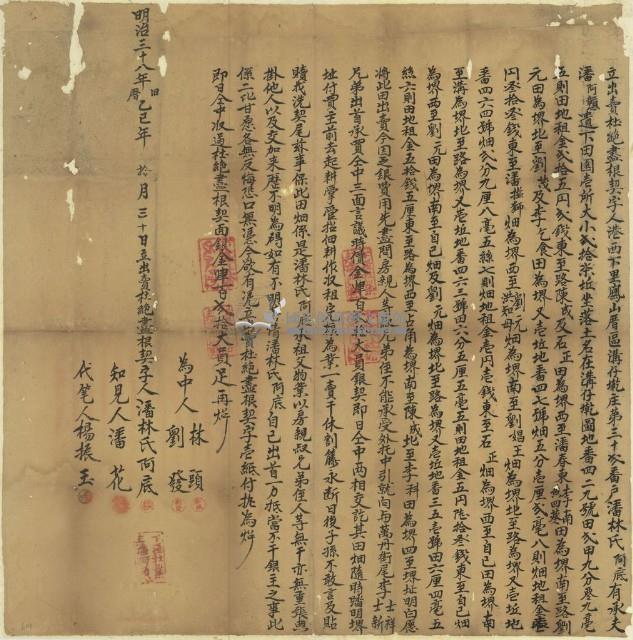 立出賣杜絕盡根契字人港西下里鳳山厝區溝仔墘庄第三十次番戶潘林氏阿底有承夫
潘阿遺下田園壹所大小貳拾柒坵坐落土名在溝仔墘圖地番四二九號田貳甲九分零九毫
五則田地租金貳拾五円貳錢東至路陳成及石正田為堺西至潘春東李南田為堺南至路劉
元田為堺北至劉茂及李乞食田為堺又壹坵地番四七號畑五分壹厘貳毫八則畑地租金
円叁拾叁錢東至潘獅畑為堺西至劉元畑為堺南至劉娼王畑為堺北至路為堺又壹坵地
番四六四號畑貳分九厘八毫五絲七則畑地租金壹円壹錢東至石正畑為堺西至自己田為堺南
至溝為堺北至路為堺又壹坵地番四六三號田六分五厘五毫五則田地租金五円陸拾叁錢東至自己畑
為堺西至劉元田為堺南至自己畑及劉元畑為堺北至路為堺又壹坵地番三五壹號田六厘四毫五
絲六則田地租金五拾錢五厘東至路為堺西至古角為堺南至陳成北至李科田為堺四至堺址明白愿
將此田出賣今因乏銀費用先盡問房親人等叔兄弟侄不能承受外托中引就向与萬丹街尾李士祥士新
兄弟出首承買仝中三面言議時價金肆百貳拾大員銀契即日仝中兩相交訖其田畑隨時踏明堺
址付買主前去起耕掌管招佃耕作收租定稅為業一賣千休割藤永斷日後子孫不敢言及貼
贖找洗契尾等事保此田畑係是潘林氏阿底承祖父物業以房親叔兄弟侄人等無干亦無重張典
掛他人以及交加來歷不明為碍如有不明等情潘林氏阿底自己出首一力抵當不干銀主之事此
係二比甘愿各無反悔恐口無憑今欲有憑立出賣杜絕盡根契字壹紙付执為炤
即日仝中收過杜絕盡根契面銀金肆百貳拾大員足再炤
為中人 林頭
劉發
知見人潘花
代筆人楊振玉
明治三十八年旧曆乙巳年 於 月三十日立出賣杜絕盡根契字人潘林氏阿底